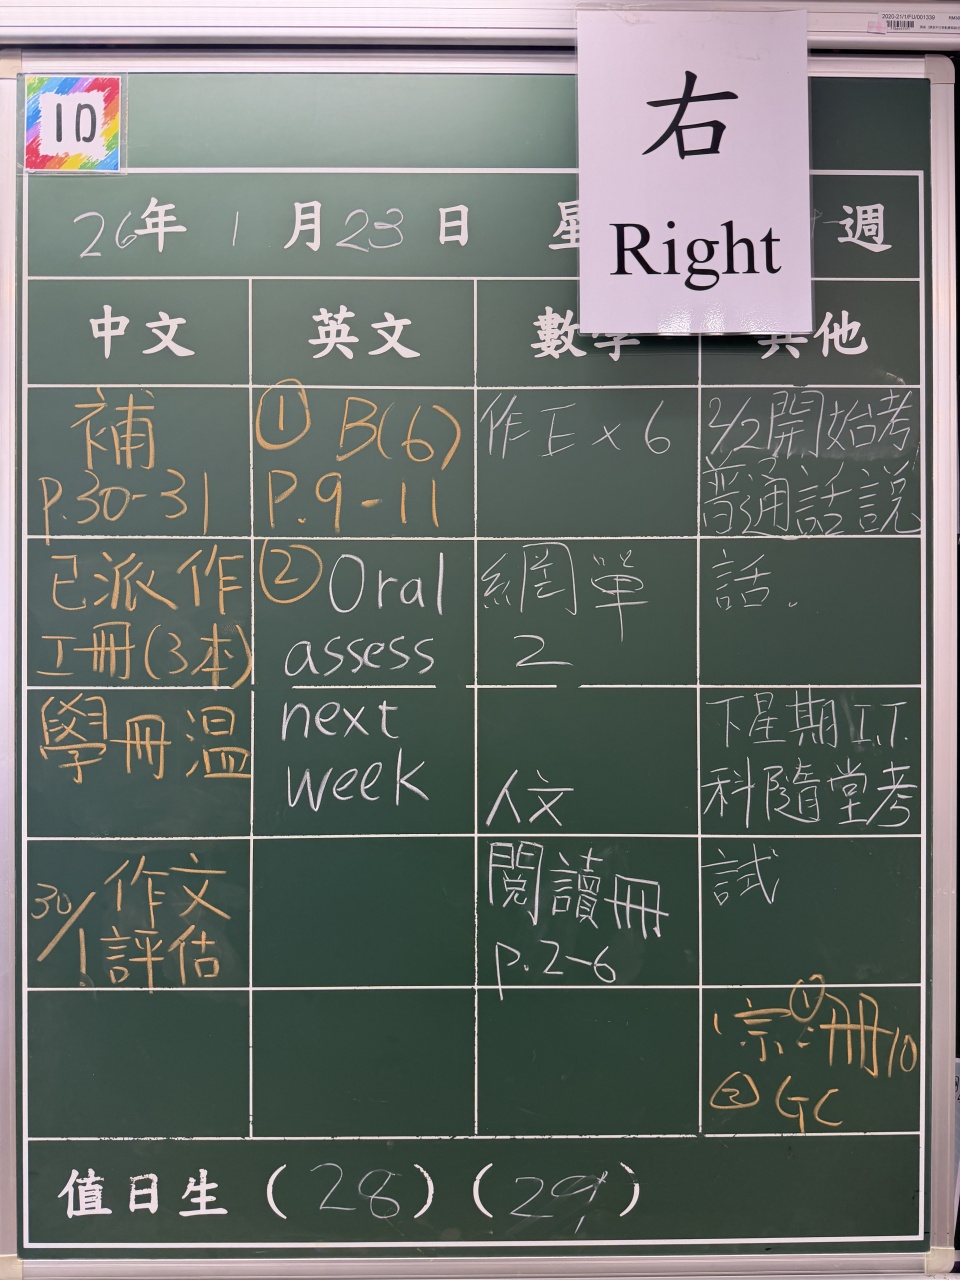 2020-21/1/FU/001339
10
右
Right
26年 1月23日 星 週
中文 英文 數學 其他
補
p.30-31
已派作
工冊(3本)
學冊溫
30/1 作文
評估
① B(6)
P.9-11
② Oral
assess
next
week
作工×6
網單
2
人文
閱讀冊
p.2-6
2/2開始考
普通話說
話.
下星期I.T.
科隨堂考
試
宗:①冊10
② GC
值日生 (28)(29)